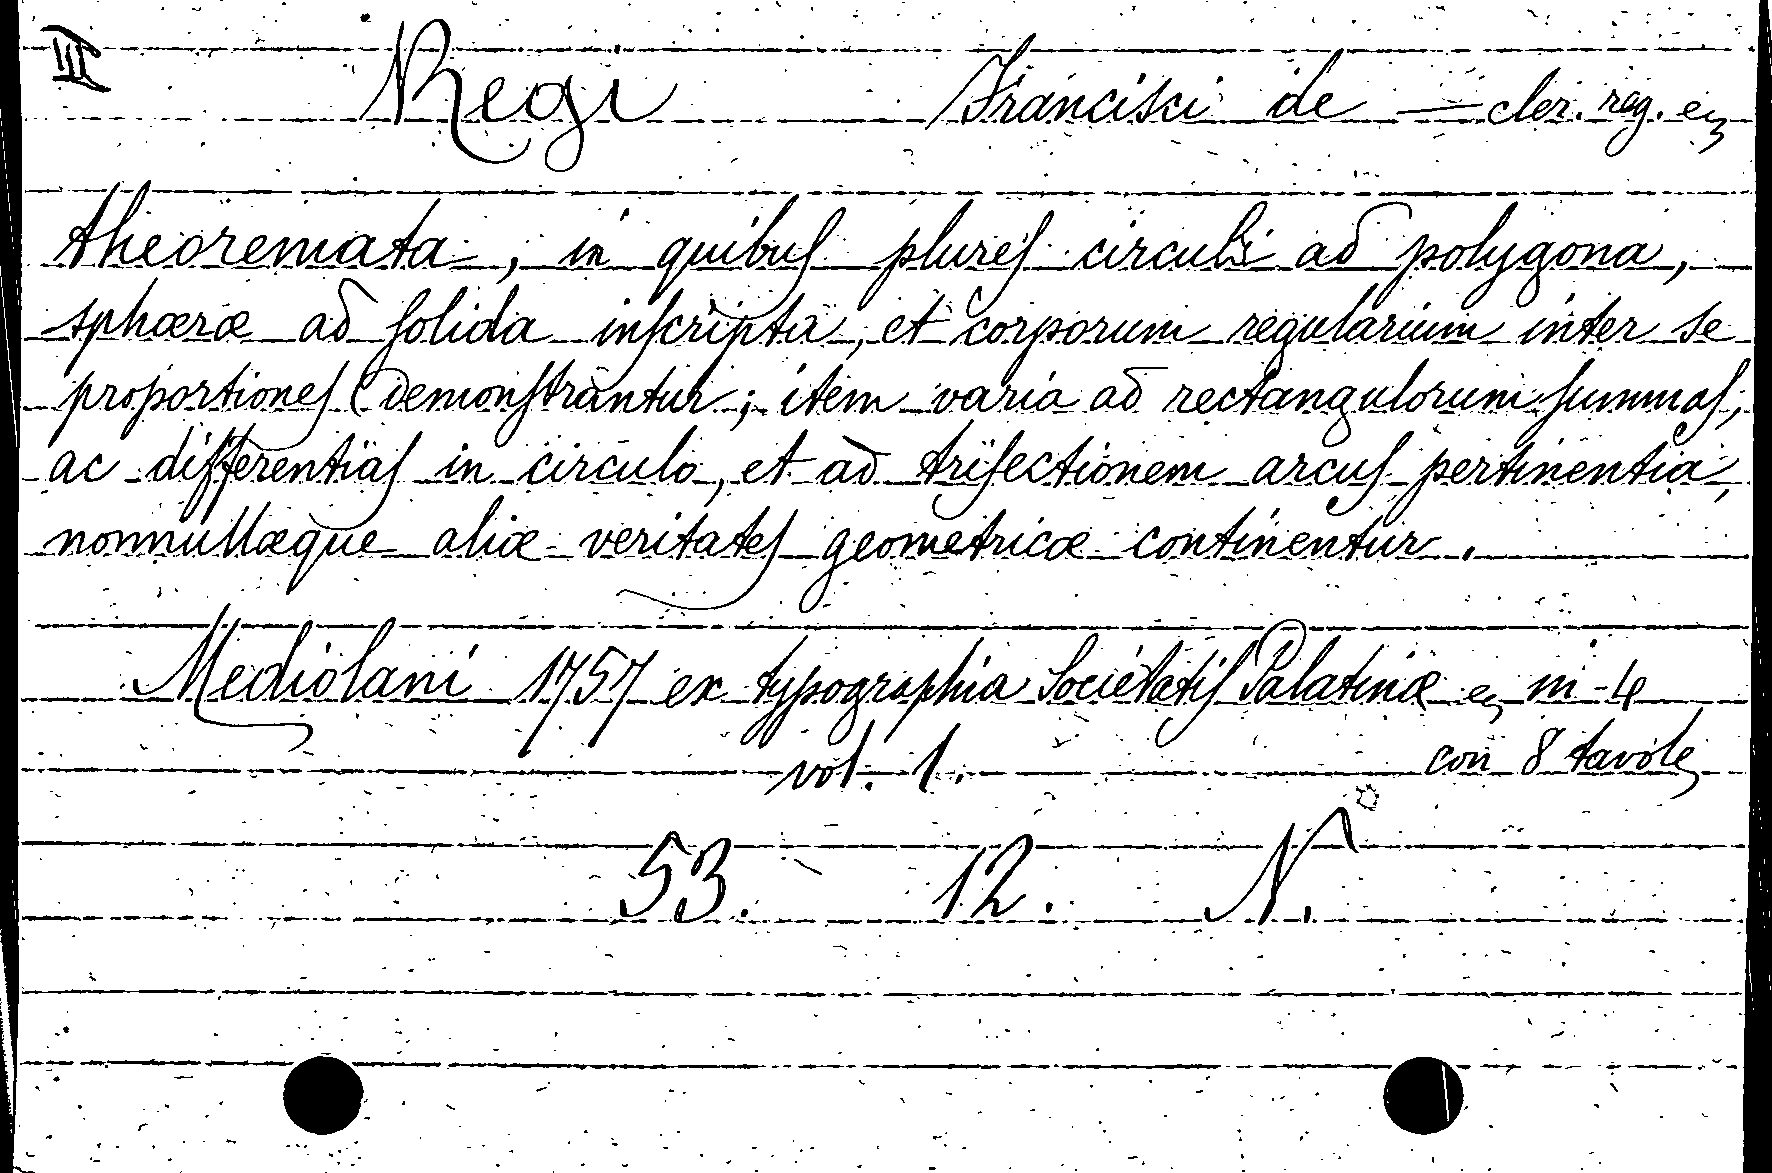 III Regi Francisci de — cler. reg. e
theoremata, in quibus plures circuli ad polygona,
sphæræ ad solida inscripta, et corporum regularium inter se
proportiones demonstrantur; item varia ad rectangulorum summas,
ac differentias in circulo, et ad trisectionem arcus pertinentia,
nonnullæque aliæ veritates geometricæ continentur.
Mediolani 1757 ex typographia Societatis Palatinæ e in-4
vol. 1. con 8 tavole
53. 12. N.